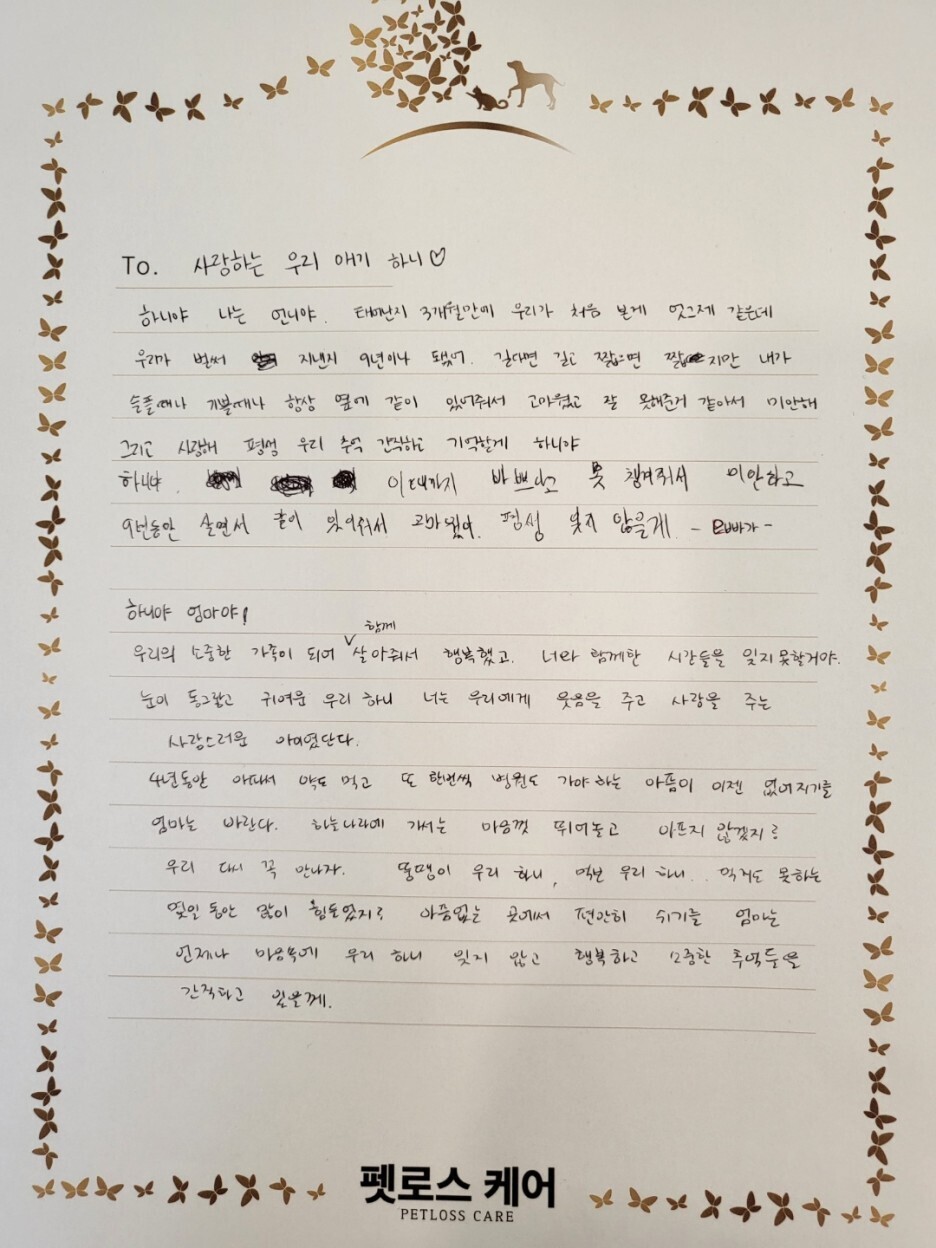 To. 사랑하는 우리 애기 하니♡
하니야 나는 언니야. 태어난지 3개월만에 우리가 처음 본게 엊그제 같은데
우리가 벌써 지낸지 9년이나 됐어. 길다면 길고 짧으면 짧지만 내가
슬플때나 기쁠때나 항상 옆에 같이 있어줘서 고마웠고 잘 못해준거 같아서 미안해
그리고 사랑해 평생 우리 추억 간직하고 기억할게 하니야
하니야. 이때까지 바쁘다고 못 챙겨줘서 미안하고
9년동안 살면서 같이 있어줘서 고마웠어. 평생 잊지 않을게. - 오빠가 -
하니야 엄마야!
함께
우리의 소중한 가족이 되어 살아줘서 행복했고. 너와 함께한 시간들을 잊지못할거야.
눈이 동그랗고 귀여운 우리 하니 너는 우리에게 웃음을 주고 사랑을 주는
사랑스러운 아이였단다.
4년동안 아파서 약도 먹고 또 한번씩 병원도 가야하는 아픔이 이젠 없어지기를
엄마는 바란다. 하늘나라에 가서는 마음껏 뛰어놀고 아프지 않겠지?
우리 다시 꼭 만나자. 똥땡이 우리 하니, 먹보 우리 하니.. 먹지도 못하는
몇일동안 많이 힘들었지? 아픔없는 곳에서 편안히 쉬기를 엄마는
언제나 마음속에 우리 하니 잊지 않고 행복하고 소중한 추억들을
간직하고 있을께.
펫로스 케어
PETLOSS CARE